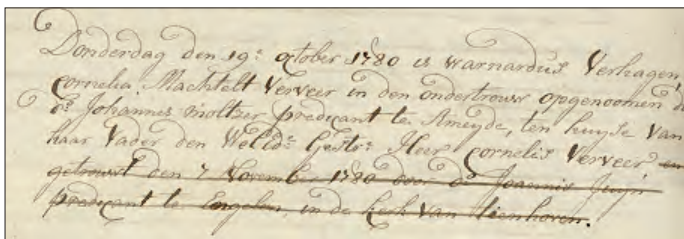 Donderdag den 19e october 1780 is Warnardus Verhagen,
Cornelia Machtelt Verveer in den ondertrouw opgenoomen d
ds Johannes Moltzer predicant te Ameyde, ten huyse van
haar Vader den WelEd: Gestr: Heer Cornelis Verveer en
getrouwt den 7 November 1780 door ds Joannis Juijn
predicant te Engelen, in de kerk van Tienhoven.